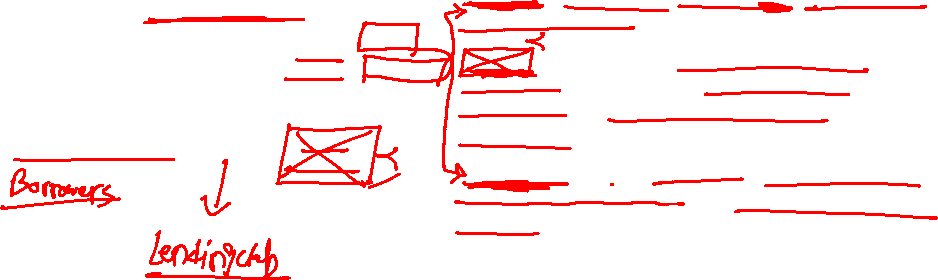 Borrowers
Lendingclub